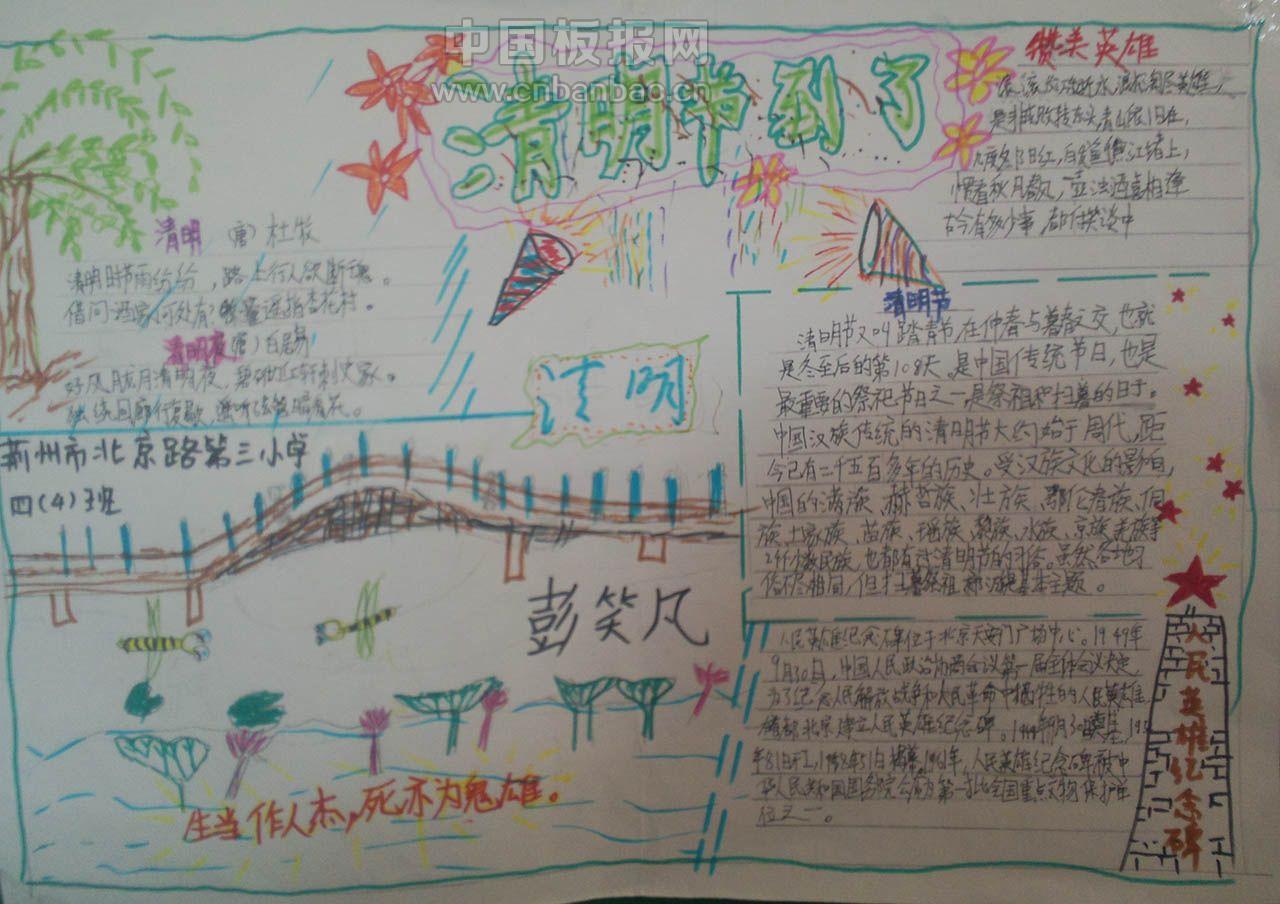 中国板报网
www.cnbanbao.cn
清明节到了
赞美英雄
滚滚长江东逝水，浪花淘尽英雄，
是非成败转头 青山依旧在，
几度夕阳红，白发渔 江渚上，
惯看秋月春风，一壶浊酒喜相逢
古今有多少事，都付笑谈中
清明 (唐) 杜牧
清明时节雨纷纷，路上行人欲断魂。
借问酒家何处有？牧童遥指杏花村。
清明夜 (唐) 白居易
好风胧月清明夜，碧砌红轩刺史家。
独绕回廊行复歇，遥听弦管暗看花。
清明
清明节
清明节又叫踏青节，在仲春与暮春之交，也就
是冬至后的第108天。是中国传统节日，也是
最重要的祭祀节日之一，是祭祖和扫墓的日子。
中国汉族传统的清明节大约始于周代，距
今已有二千五百多年的历史。受汉族文化的影响，
中国的满族、赫哲族、壮族、鄂伦春族、侗
族、土家族、苗族、瑶族、黎族、水族、京族、羌族等
24个少数民族，也都有过清明节的习俗。虽然各地习
俗不尽相同，但扫墓祭祖 基本主题。
荆州市北京路第三小学
四(4)班
彭笑凡
人民英雄纪念碑位于北京天安门广场中心。1949年
9月30日，中国人民政治协商会议第一届全体会议决定，
为了纪念人民解放战争和人民革命中牺牲的人民英雄，
首都北京建立人民英雄纪念碑。1949年9月30日奠基，195
年8月1日开工，1958年5月1日揭幕。1961年，人民英雄纪念碑被中
华人民共和国国务院公布为第一批全国重点文物保护单
位之一。
人民英雄纪念碑
生当作人杰，死亦为鬼雄。